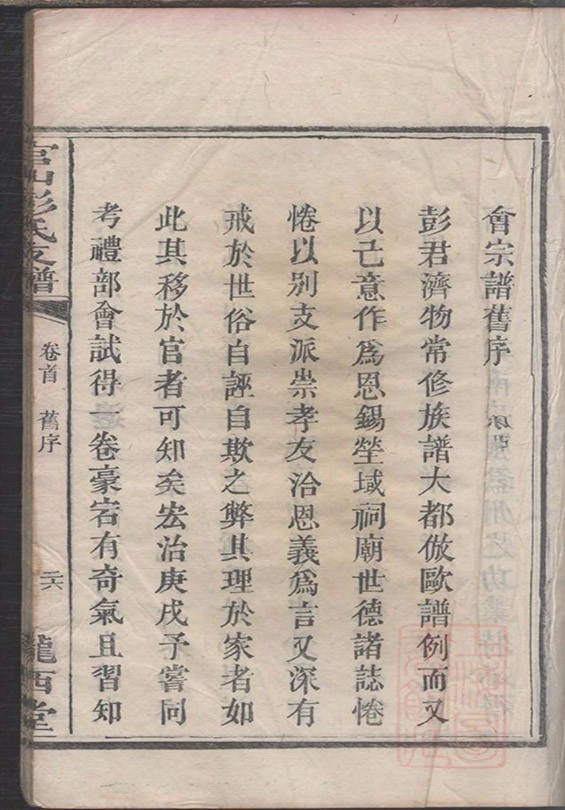 會宗譜舊序
彭君濟物常修族譜大都倣歐譜例而又
以己意作爲恩錫塋域祠廟世德諸誌惓
惓以別支派崇孝友洽恩義爲言又深有
戒於世俗自誣自欺之弊其理於家者如
此其移於官者可知矣宏治庚戌予嘗同
考禮部會試得一卷豪宕有奇氣且習知
官山彭氏支譜
卷首 舊序
二六
隴西堂